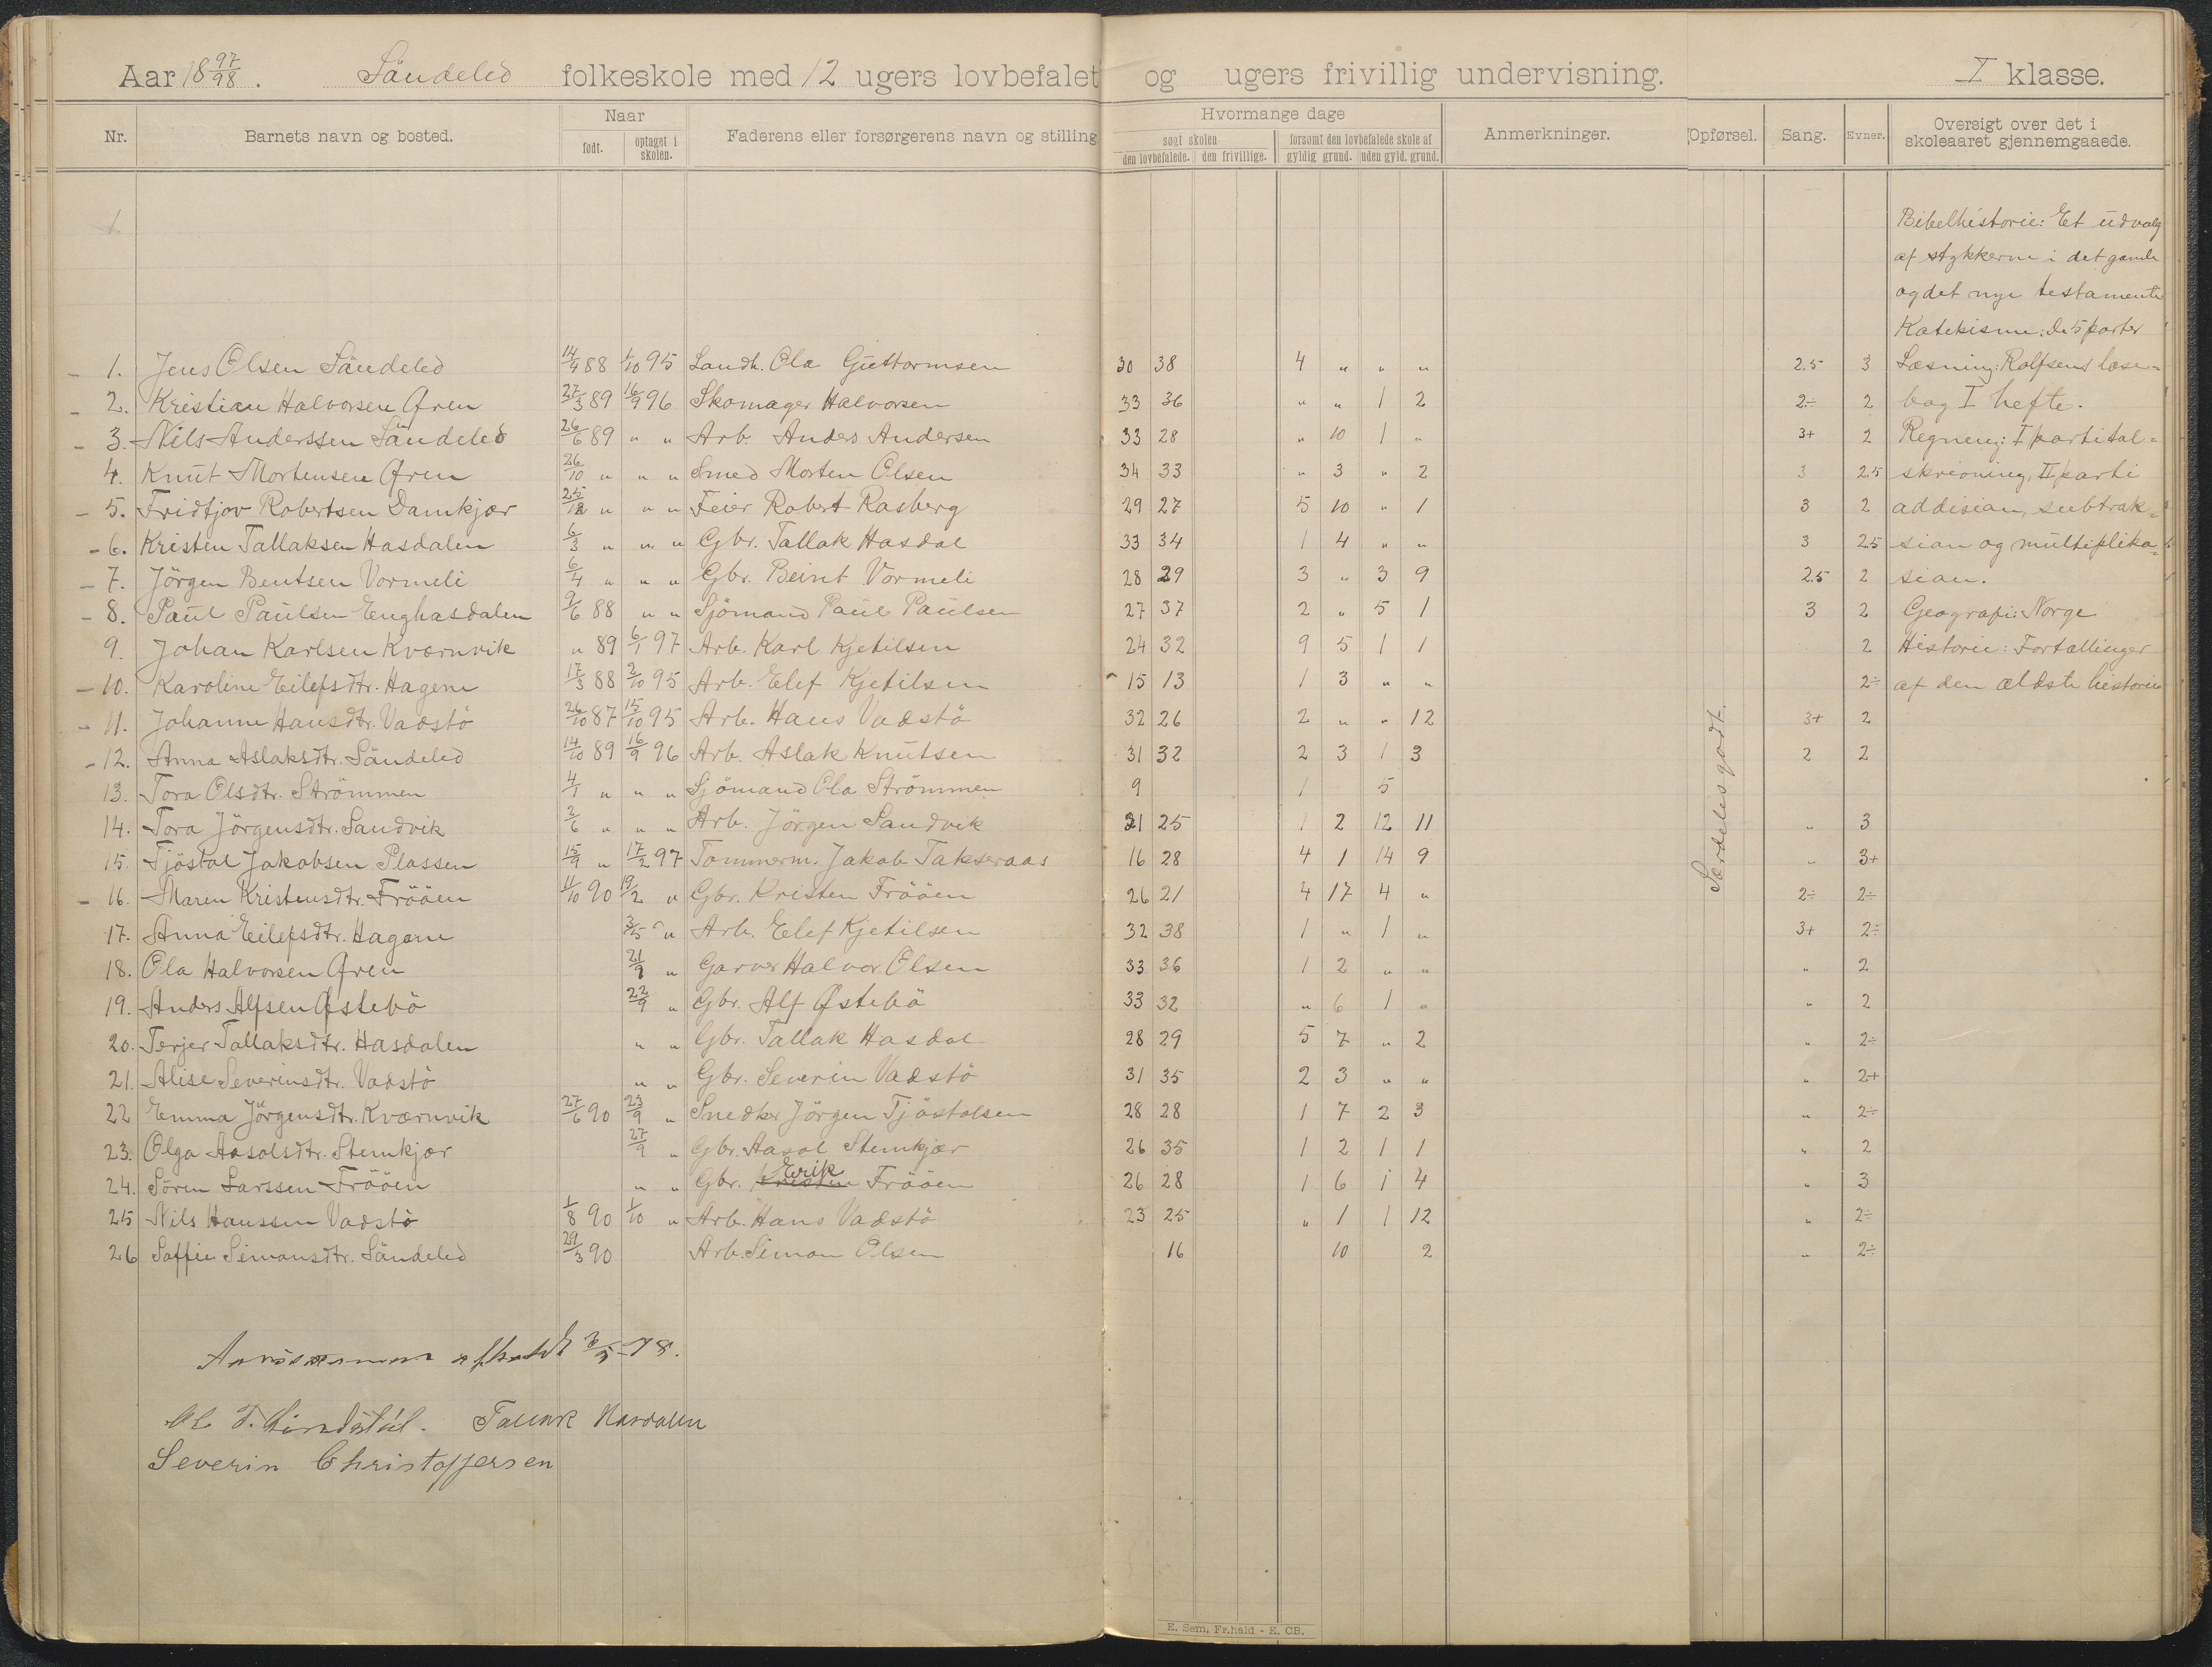 Aar 18 97/98. Söndeled folkeskole med 12 ugers lovbefalet og ugers frivillig undervisning. I klasse.
Nr. Barnets navn og bosted. Naar født. optaget i skolen. Faderens eller forsørgerens navn og stilling. Hvormange dage søgt skolen den lovbefalede. den frivillige. forsømt den lovbefalede skole af gyldig grund. uden gyld. grund. Anmerkninger. Opførsel. Sang. Evner. Oversigt over det i skoleaaret gjennemgaaede.
Bibelhistorie: Et udvalg
af stykkerne i det gamle
og det nye testamente
Katekisme: De 5 parter
1. Jens Olsen Söndeled 14/4 88 1/10 95 Landh. Ola Guttormsen 30 38 4 " " " 2.5 3 Læsning: Rolfsens læse=
2. Kristian Halvorsen Øren 27/3 89 16/9 96 Skomager Halvorsen 33 36 " " 1 2 2÷ 2 bog I hefte.
3. Nils Anderssen Söndeled 26/6 89 " " Arb. Anders Andersen 33 28 " 10 1 " 3+ 2 Regning: I parti tal=
4. Knut Mortensen Øren 26/10 " " " Smed Morten Olsen 34 33 " 3 " 2 3 2.5 skrivning, II parti
5. Fridtjov Robertsen Damkjær 25/12 " " " Feier Robert Rasberg 29 27 5 10 " 1 3 2 addisian, subtrak=
6. Kristen Tallaksen Hasdalen 6/3 " " " Gbr. Tallak Hasdal 33 34 1 4 " " 3 2.5 sian og multiplika=
7. Jörgen Bentsen Vormeli 6/4 " " " Gbr. Beint Vormeli 28 29 3 " 3 9 2.5 2 sian.
8. Paul Paulsen Enghasdalen 9/6 88 " " Sjömand Paul Paulsen 27 37 2 " 5 1 3 2 Geografi: Norge
9. Johan Karlsen Kværnvik " 89 6/1 97 Arb. Karl Kjetilsen 24 32 9 5 1 1 2 Historie: Fortællinger
10. Karoline Eilefsdtr. Hagene 17/3 88 2/10 95 Arb. Elef Kjetilsen 15 13 1 3 " " 2÷ af den ældste historie
11. Johanne Hansdtr. Vadstö 26/10 87 15/10 95 Arb. Hans Vadstö 32 26 2 " " 12 3+ 2
12. Anna Aslaksdtr. Söndeled 14/10 89 16/9 96 Arb. Aslak Knutsen 31 32 2 3 1 3 2 2
13. Tora Olsdtr. Strömmen 4/1 " " " Sjömand Ola Strömmen 9 1 5
14. Tora Jörgensdtr. Sandvik 2/6 " " " Arb. Jörgen Sandvik 31 25 1 2 12 11 " 3
15. Tjöstol Jakobsen Plassen 15/9 " 17/2 97 Tömmerm. Jakob Takseraas 16 28 4 1 14 9 " 3+
16. Maren Kristensdtr. Frööen 11/10 90 19/2 " Gbr. Kristen Frööen 26 21 4 17 4 " 2÷ 2÷
17. Anna Eilefsdtr. Hagene 3/5 " Arb. Elef Kjetilsen 32 38 1 " 1 " 3+ 2÷
18. Ola Halvorsen Øren 21/9 " Garver Halvor Olsen 33 36 1 2 " " " 2
19. Anders Alfsen Østebö 22/9 " Gbr. Alf Østebö 33 32 " 6 1 " " 2
20. Terjer Tallaksdtr. Hasdalen " " Gbr. Tallak Hasdal 28 29 5 7 " 2 " 2÷
21. Alise Severinsdtr. Vadstö " " Gbr. Severin Vadstö 31 35 2 3 " " " 2+
22 Emma Jörgensdtr. Kværnvik 27/6 90 23/9 " Snedker Jörgen Tjöstolsen 28 28 1 7 2 3 " 2÷
23. Olga Aasolsdtr. Stemkjær 27/9 " Gbr. Aasol Stemkjær 26 35 1 2 1 1 " 2
24. Sören Larssen Frööen " " Gbr. Kristen Erik Frööen 26 28 1 6 1 4 " 3
25 Nils Hanssen Vadstö 1/8 90 1/10 " Arb. Hans Vadstö 23 25 " 1 1 12 " 2÷
26 Soffie Simonsdtr. Söndeled 29/3 90 Arb. Simon Olsen 16 10 2 " 2÷
Særdeles godt.
afholdt 3/5-98.
Tallak Hasdalen
Severin Christoffersen
E. Sem, Fr.hald - E. CB.